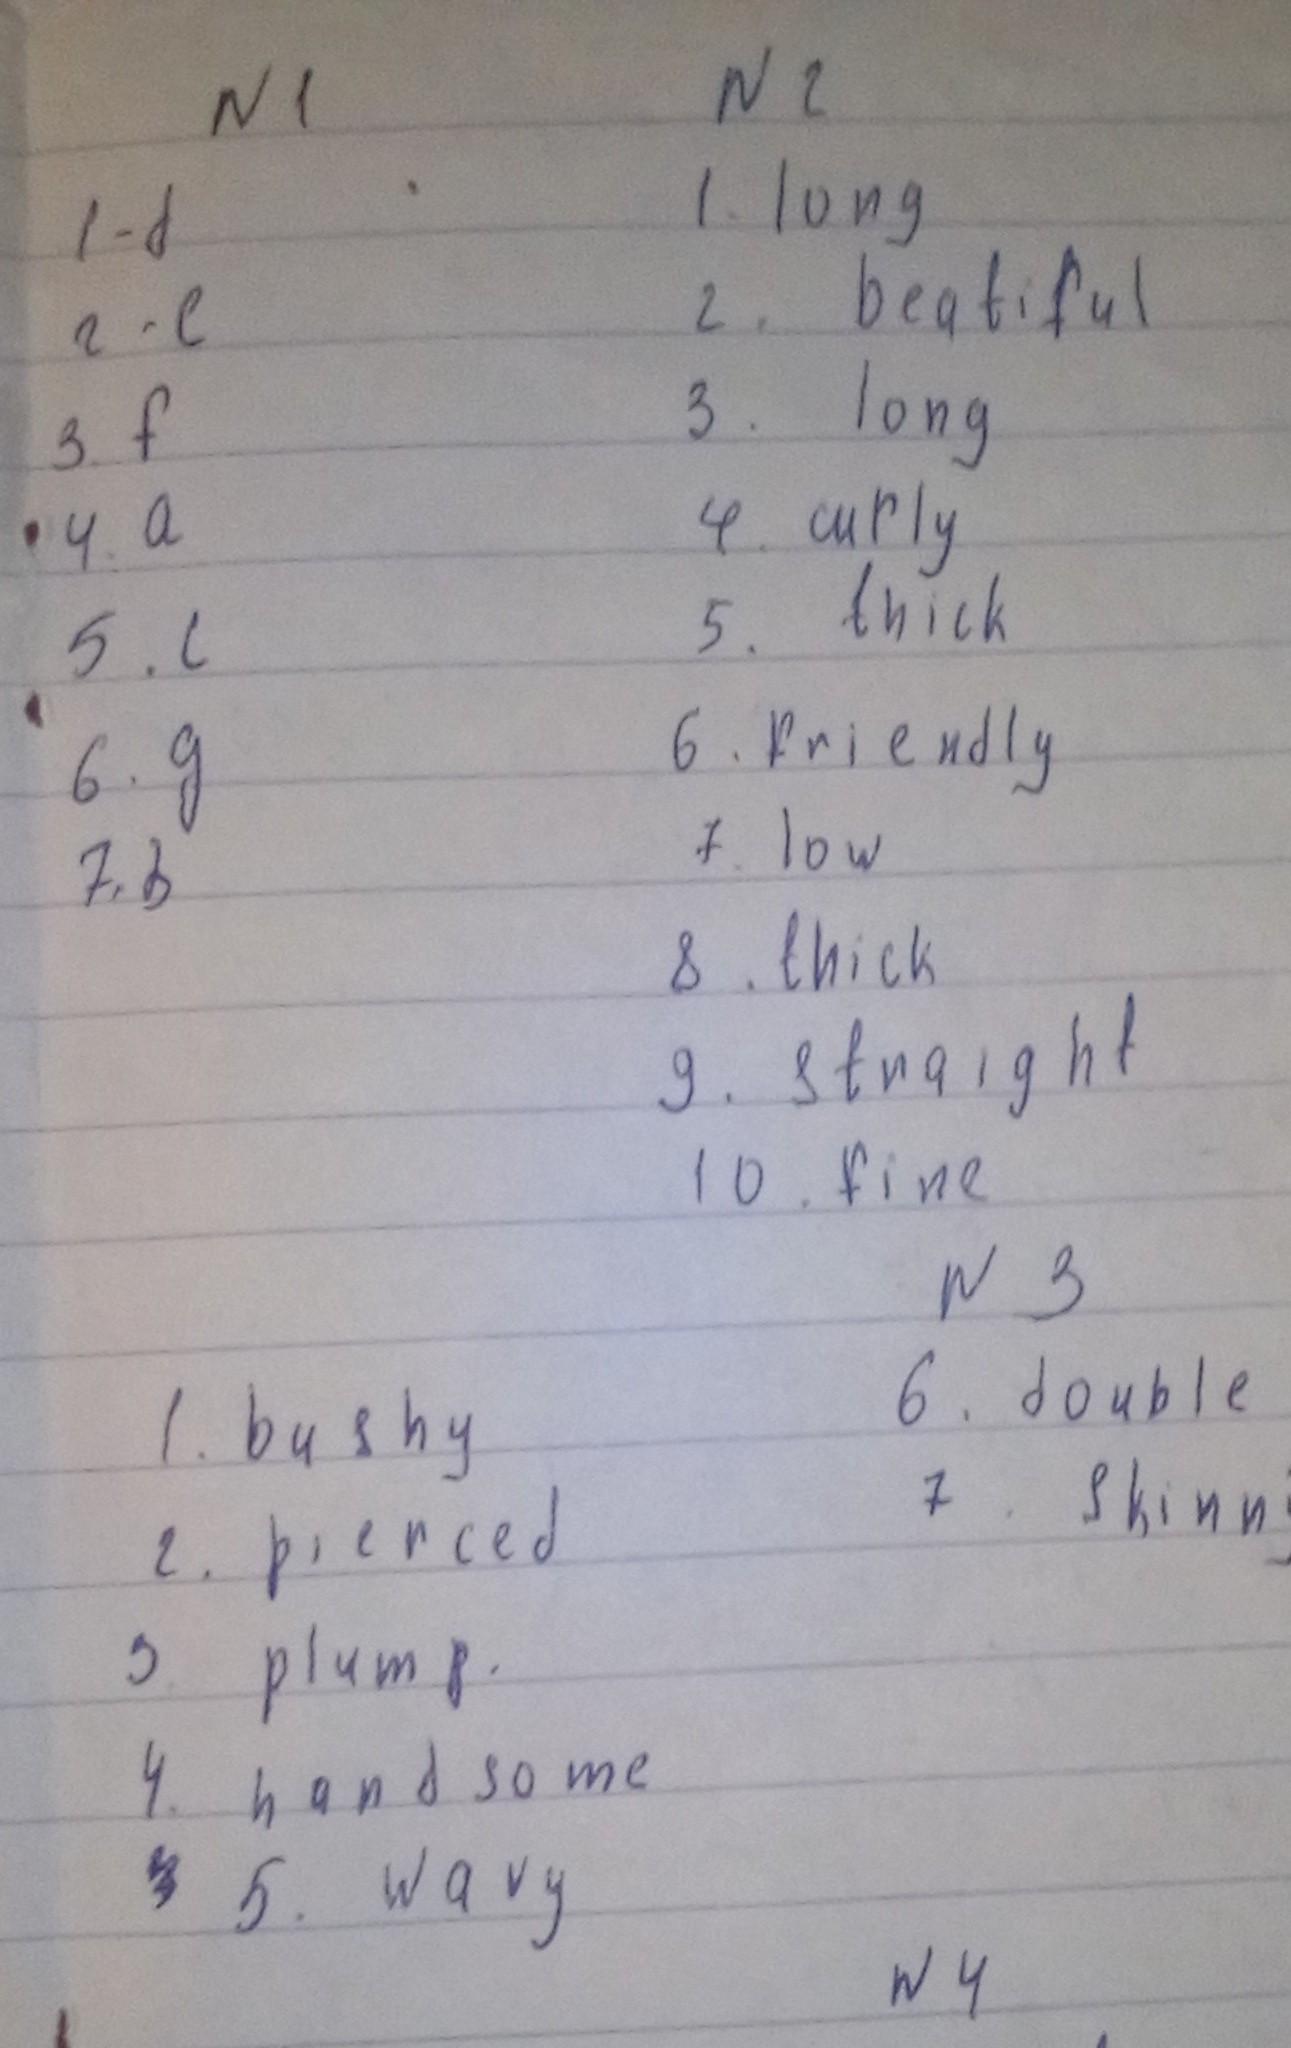 N 1
1-d
2-e
3. f
4. a
5. c
6. g
7. b
N 2
1. long
2. beatiful
3. long
4. curly
5. thick
6. friendly
7. low
8. thick
9. straight
10. fine
N 3
1. bushy
2. pierced
3. plump.
4. handsome
5. wavy
6. double
7. skinny
N 4